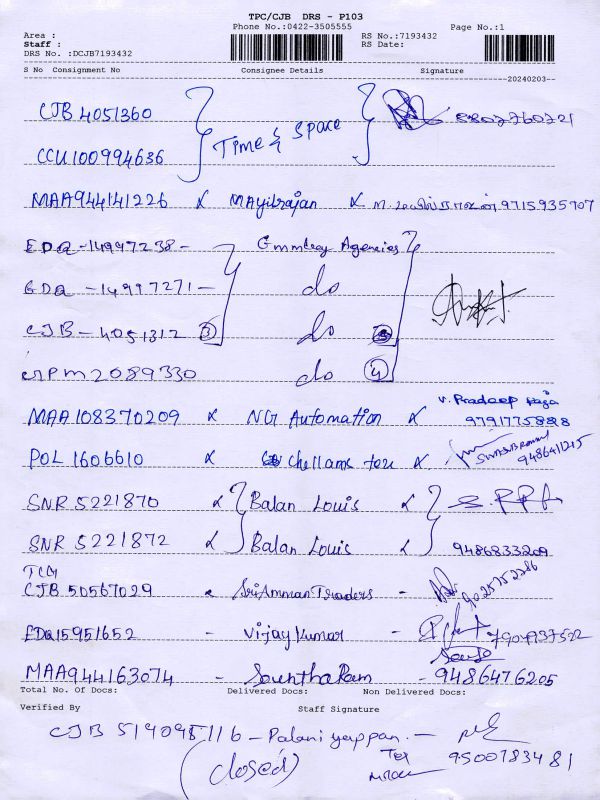 TPC/CJB DRS - P103
Phone No.:0422-3505555
Page No.:1
Area :
Staff :
RS No.:7193432
RS Date:
DRS No. :DCJB7193432
S No Consignment No Consignee Details Signature
20240203
CJB 4051360
Time & Space
CCU100994636
MAA944141226 Mayilrajan 9715935707
EDQ-14997238- Agencies
EDQ-14997271- do
CJB-4051312 3 do
2089330 do 4
MAA108370209 NG Automation V. Pradeep Raja
POL 1606610 Chellams
SNR 5221870 Balan Louis
SNR 5221872 Balan Louis 9486833209
TCG
CJB 50567029 Sri Amman Traders - 9025252286
EDQ15951652 - Vijay Kumar -
MAA944163074 - Sountha Ram - 9486476205
Total No. Of Docs: Delivered Docs: Non Delivered Docs:
Verified By Staff Signature
CJB 514095116 - Palaniyappan. -
(closed) 9500783481